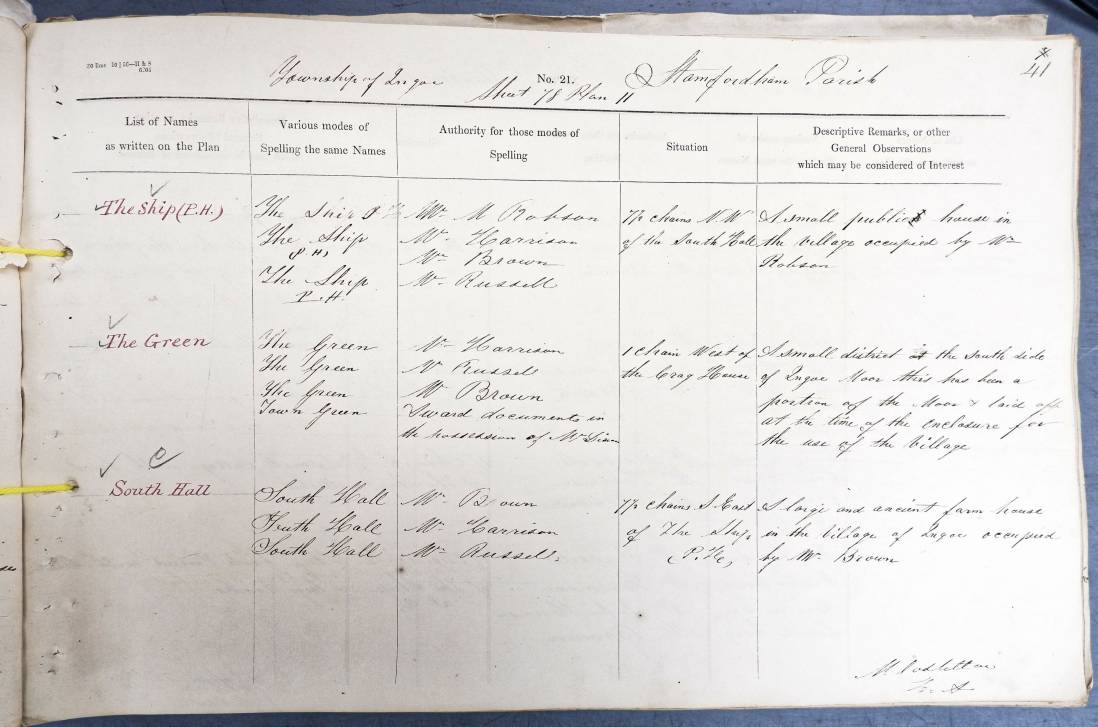 41
Township of Ingoe
No. 21.
Stamfordham Parish
Sheet 78 Plan 11
List of Names
as written on the Plan
Various modes of
Spelling the same Names
Authority for those modes of
Spelling
Situation
Descriptive Remarks, or other
General Observations
which may be considered of Interest
The Ship (P.H.)
The Ship P.H.
The Ship
(P.H)
The Ship
P.H.
Mr. M Robson
Mr. Harrison
Mr. Brown
Mr. Russell
7½ chains N.W
of the South Hall
A small public house in
the village occupied by Mr
Robson
The Green
The Green
The Green
The Green
Town Green
Mr Harrison
Mr Russell
Mr Brown
Award documents in
the possession of Mr
1 chain West of
the Crag House
A small district at the south side
of Ingoe Moor this has been a
portion of the Moor & laid off
at the time of the enclosure for
the use of the Village
South Hall
South Hall
South Hall
South Hall
Mr. Brown
Mr. Harrison
Mr. Russell.
7½ chains S. East
of The Ship
(P.H.)
A large and ancient farm house
in the village of Ingoe occupied
by Mr. Brown